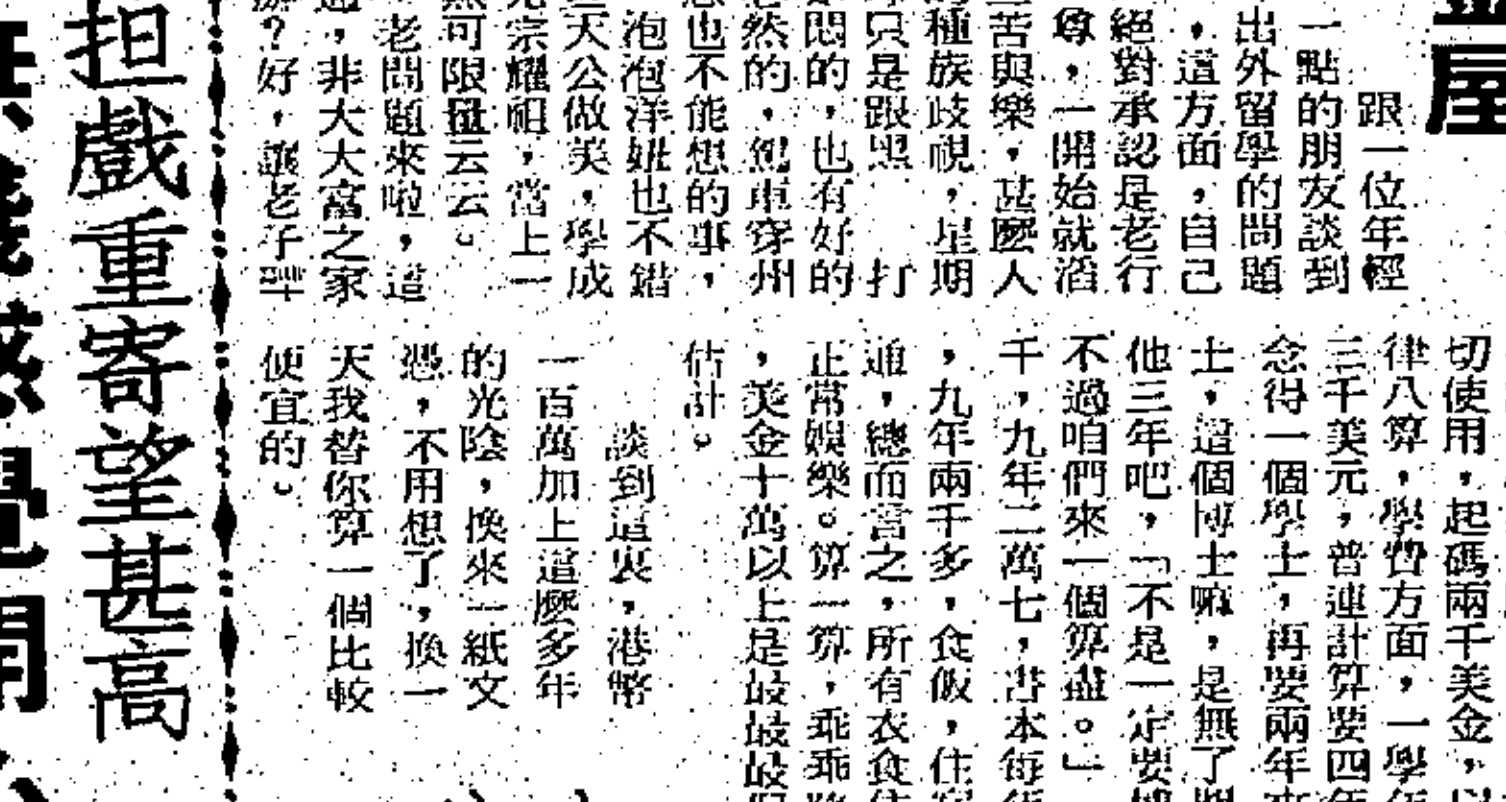 屋
跟一位年輕
一點的朋友談到
出外留學的問題
，這方面，自己
絕對承認是老行
尊，一開始就滔
苦與樂，甚麼人
種族歧視，星期
只是跟黑　打
悶的，也有好的
然的，駕車穿州
也不能想的事，
泡泡洋妞也不錯
天公做美，學成
宗耀祖，當上一
可限量云云。
老問題來啦，這
，非大大富之家
？好，讓老子
切使用，起碼兩千美金，以
律八算，學費方面，一學年
三千美元，普通計算要四年
念得一個學士，再要兩年
士，這個博士嘛，是無了期
他三年吧，「不是一定要博
不過咱們來一個算盡。」
千，九年二萬七，書本每
，九年兩千多，食飯，住
通，總而言之，所有衣食住
正常娛樂。算一算，乖乖
，美金十萬以上是最最最
估計。
談到這裏，港幣
一百萬加上這麼多年
的光陰，換來一紙文
憑，不用想了，換一
天我替你算一個比較
便宜的。
担戲重寄望甚高
感覺開